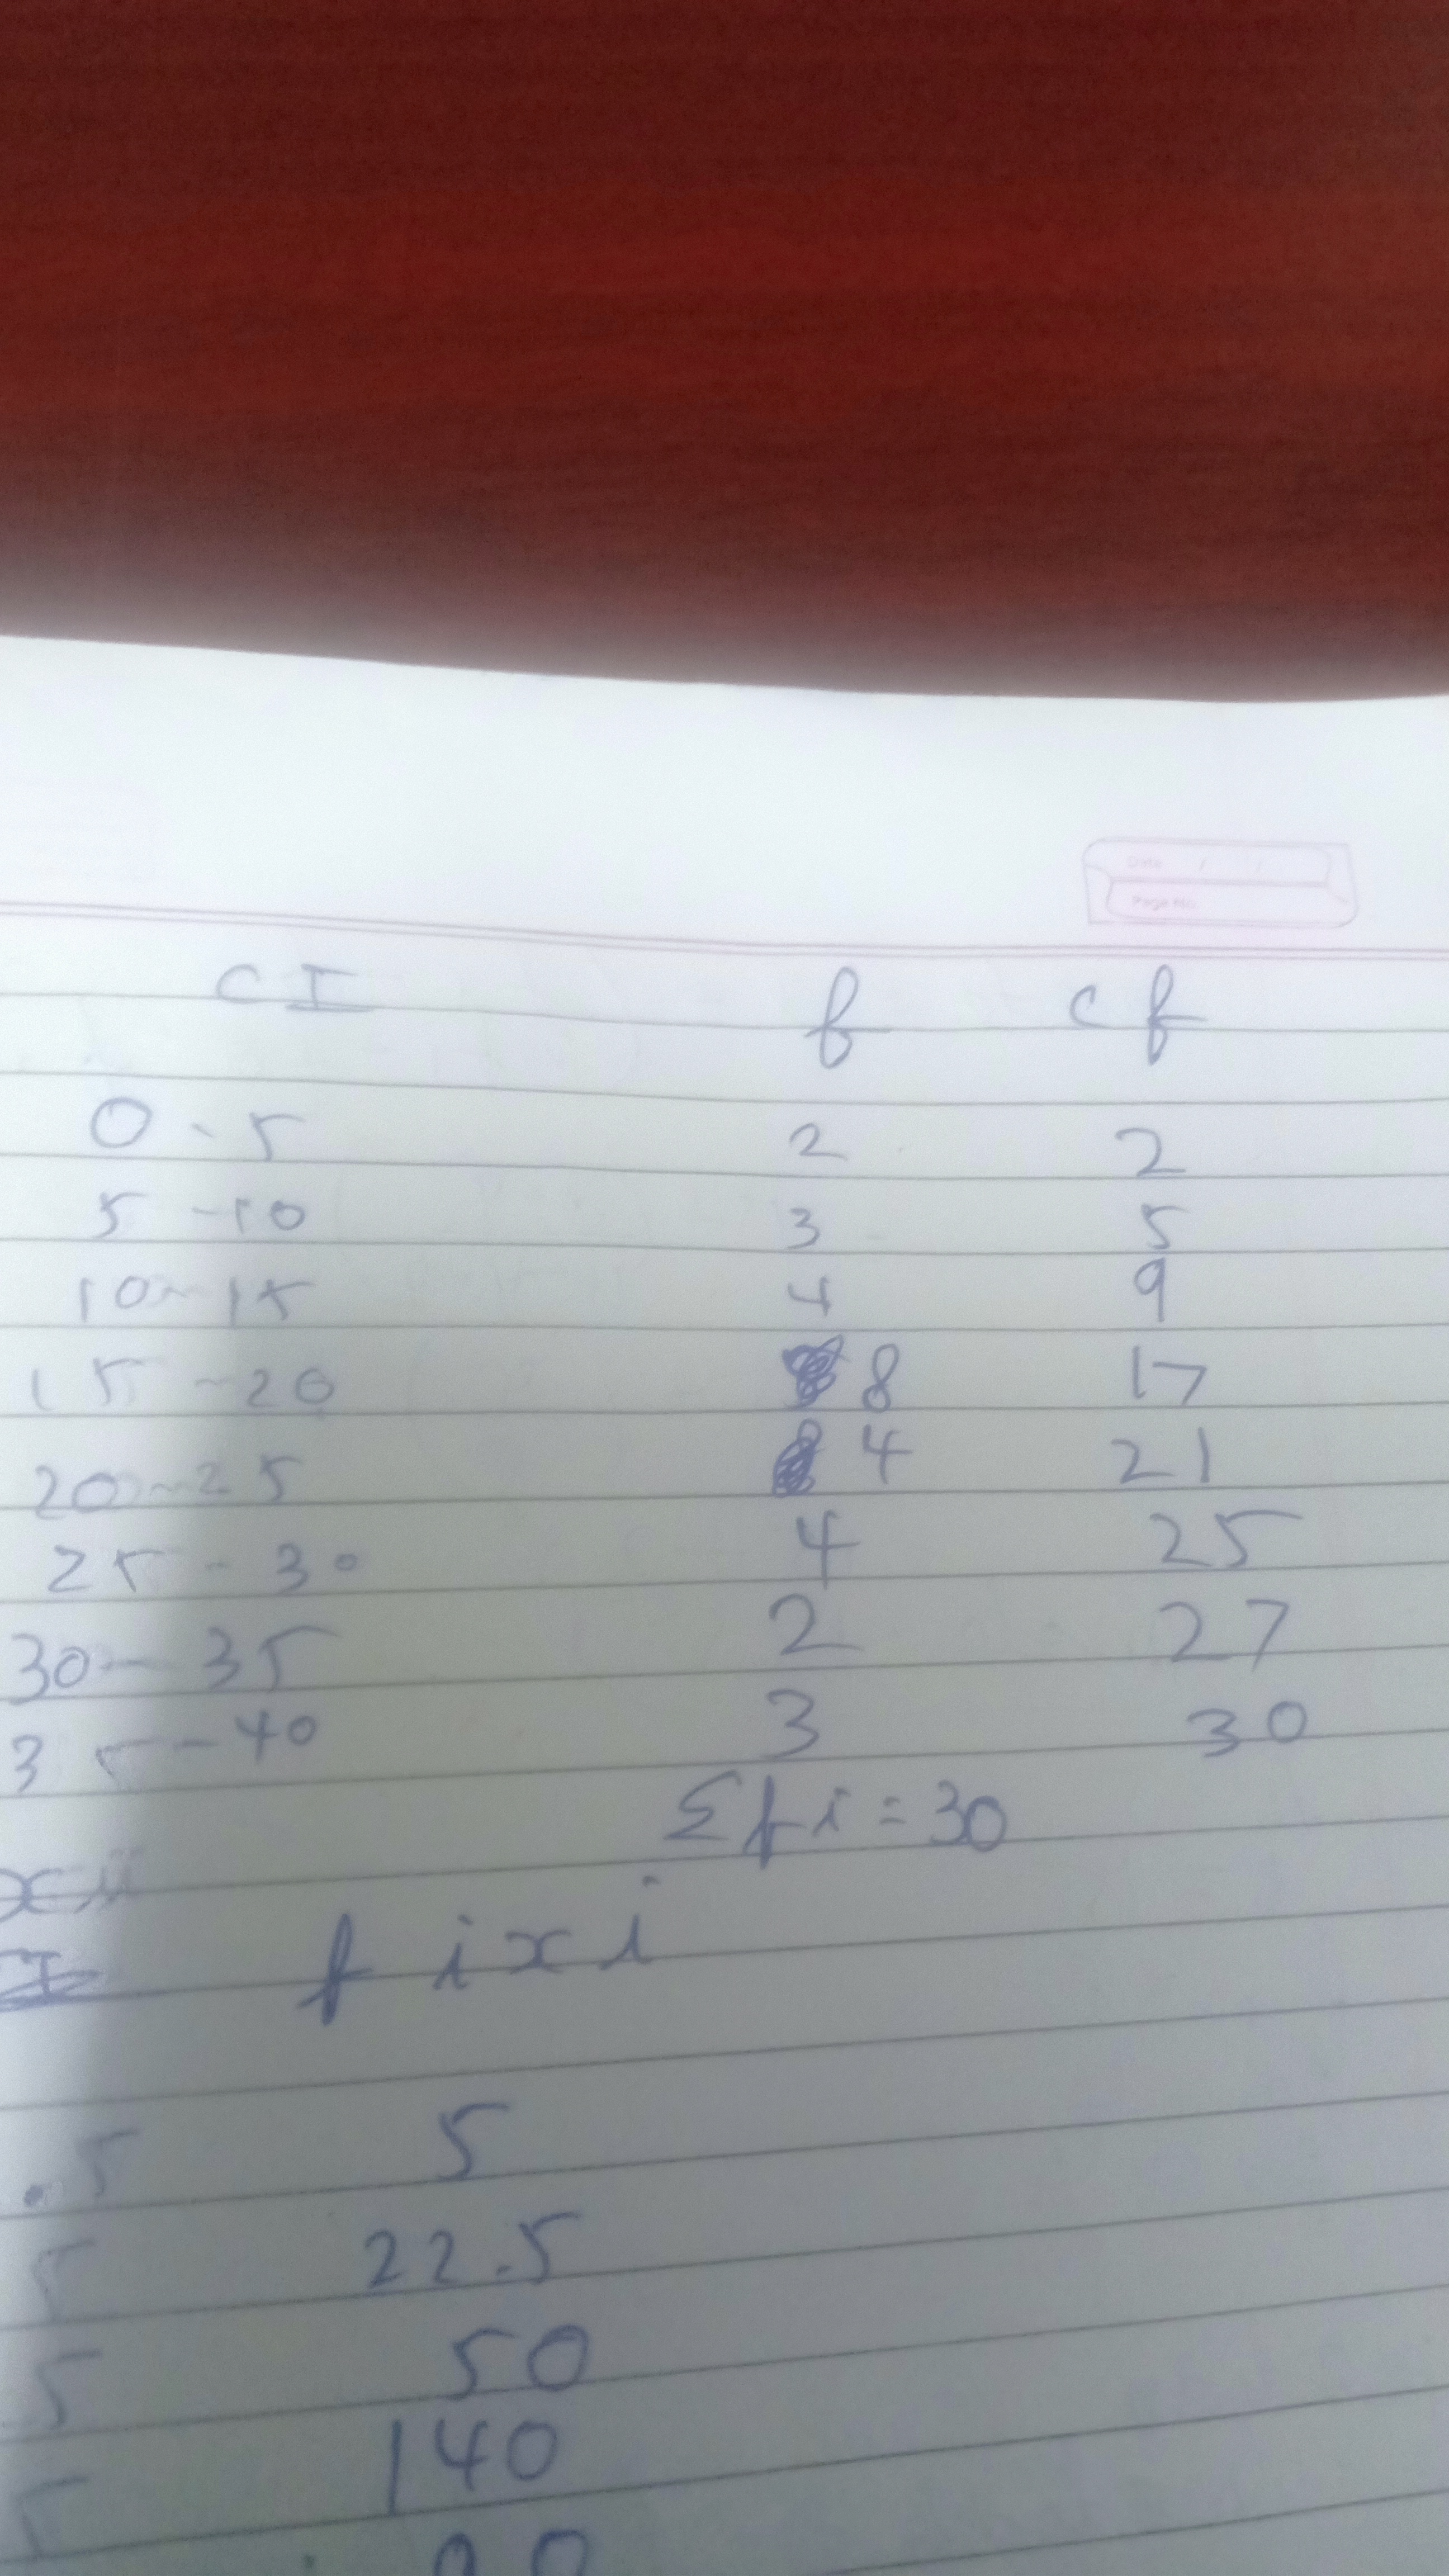 Date / /
Page No.
CI f cf
0 - 5 2 2
5 - 10 3 5
10 - 15 4 9
15 - 20 8 17
20 - 25 4 21
25 - 30 4 25
30 - 35 2 27
35 - 40 3 30
Σfi = 30
fixi
.5 5
5 22.5
5 50
5 140
90